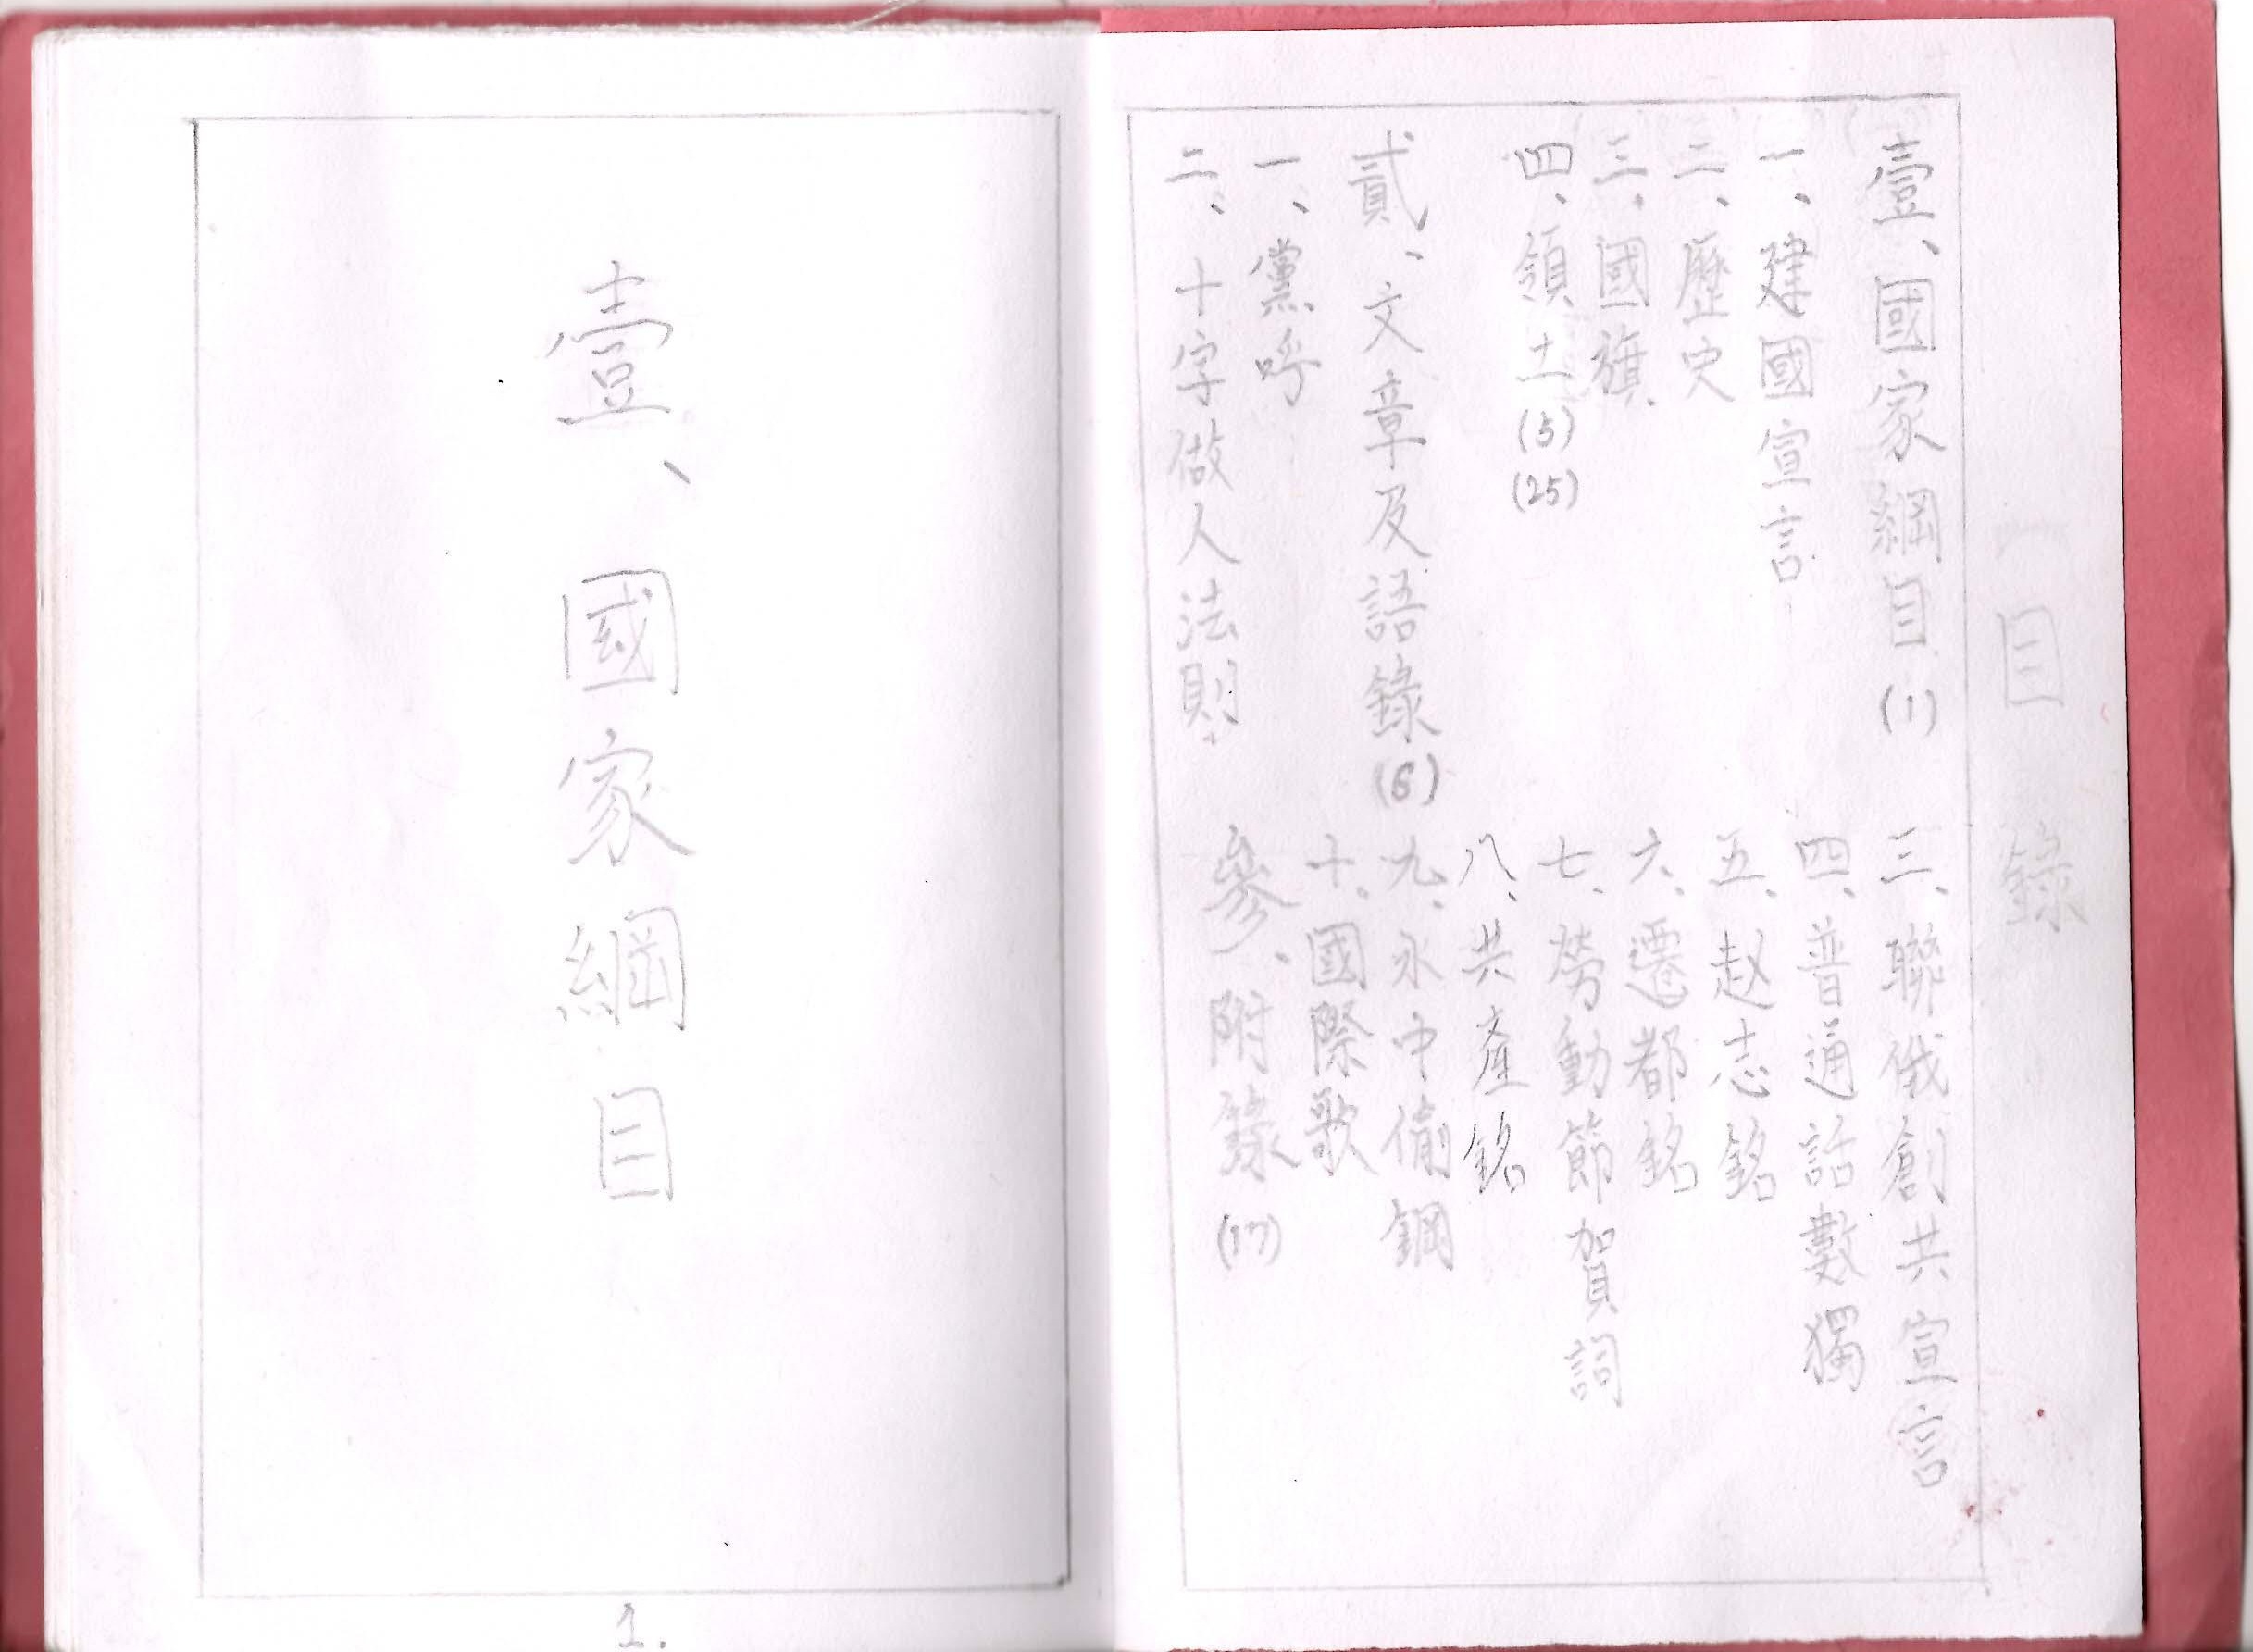 目錄
壹、國家綱目(1)
一、建國宣言
二、歷史
三、國旗
四、領土(5)(25)
貳、文章及語錄(6)
一、黨呼
二、十字做人法則
三、聯俄創共宣言
四、普通話數獨
五、赵志銘
六、遷都銘
七、勞動節賀詞
八、共產銘
九、永中偷鋼
十、國際歌
參、附錄(17)
壹、國家綱目
1.